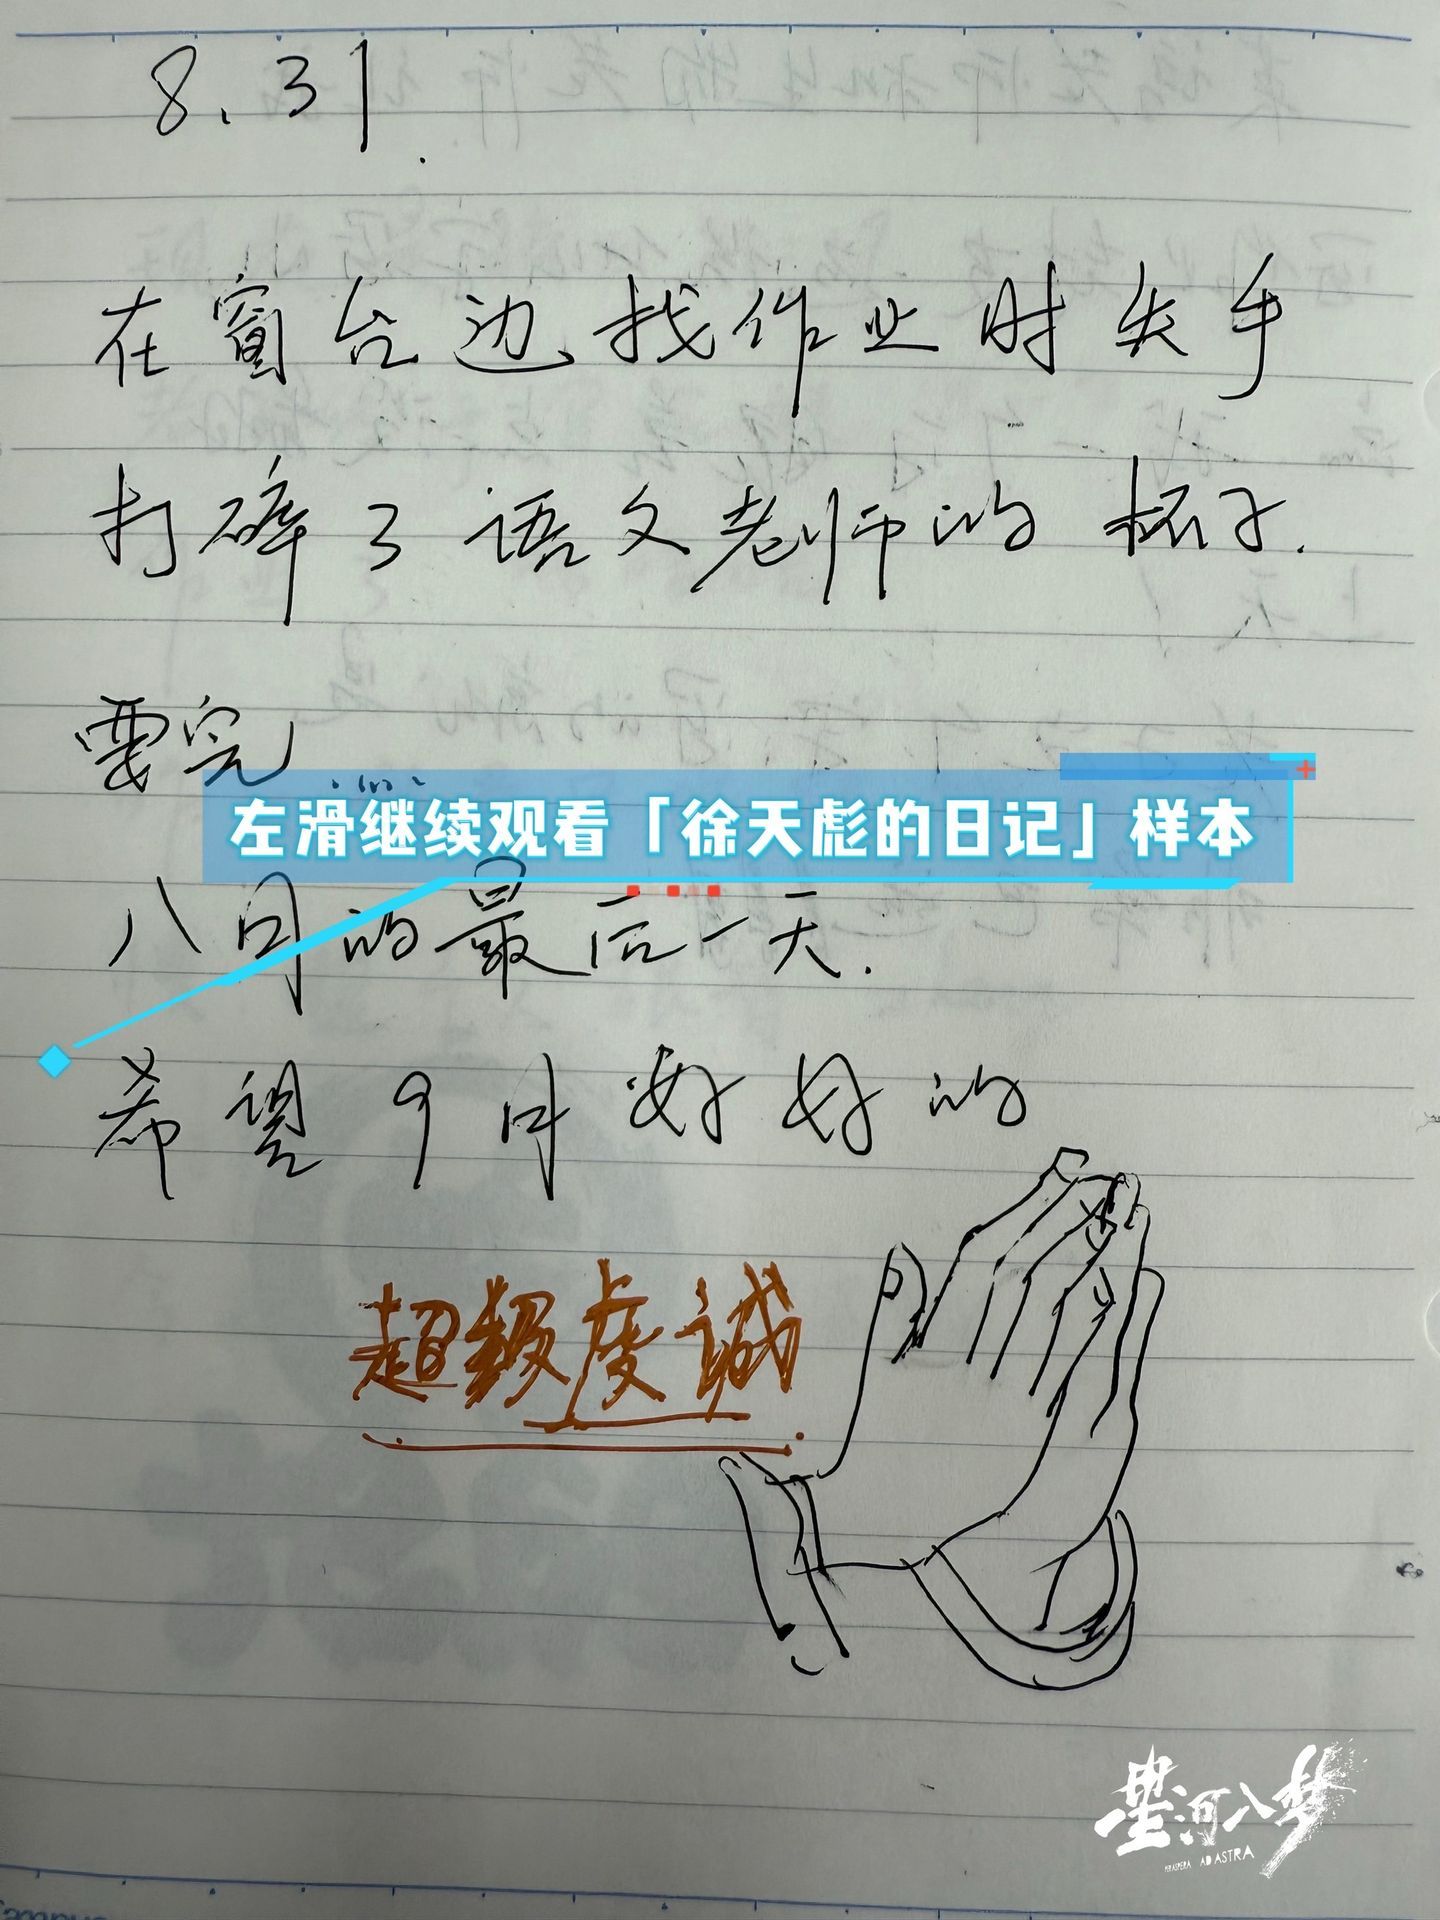 8.31.
在窗台边找作业时失手
打碎了语文老师的杯子.
要完
左滑继续观看「徐天彪的日记」样本
八月的最后一天.
希望9月好好的
超级虔诚
星河入梦
PER ASPERA AD ASTRA